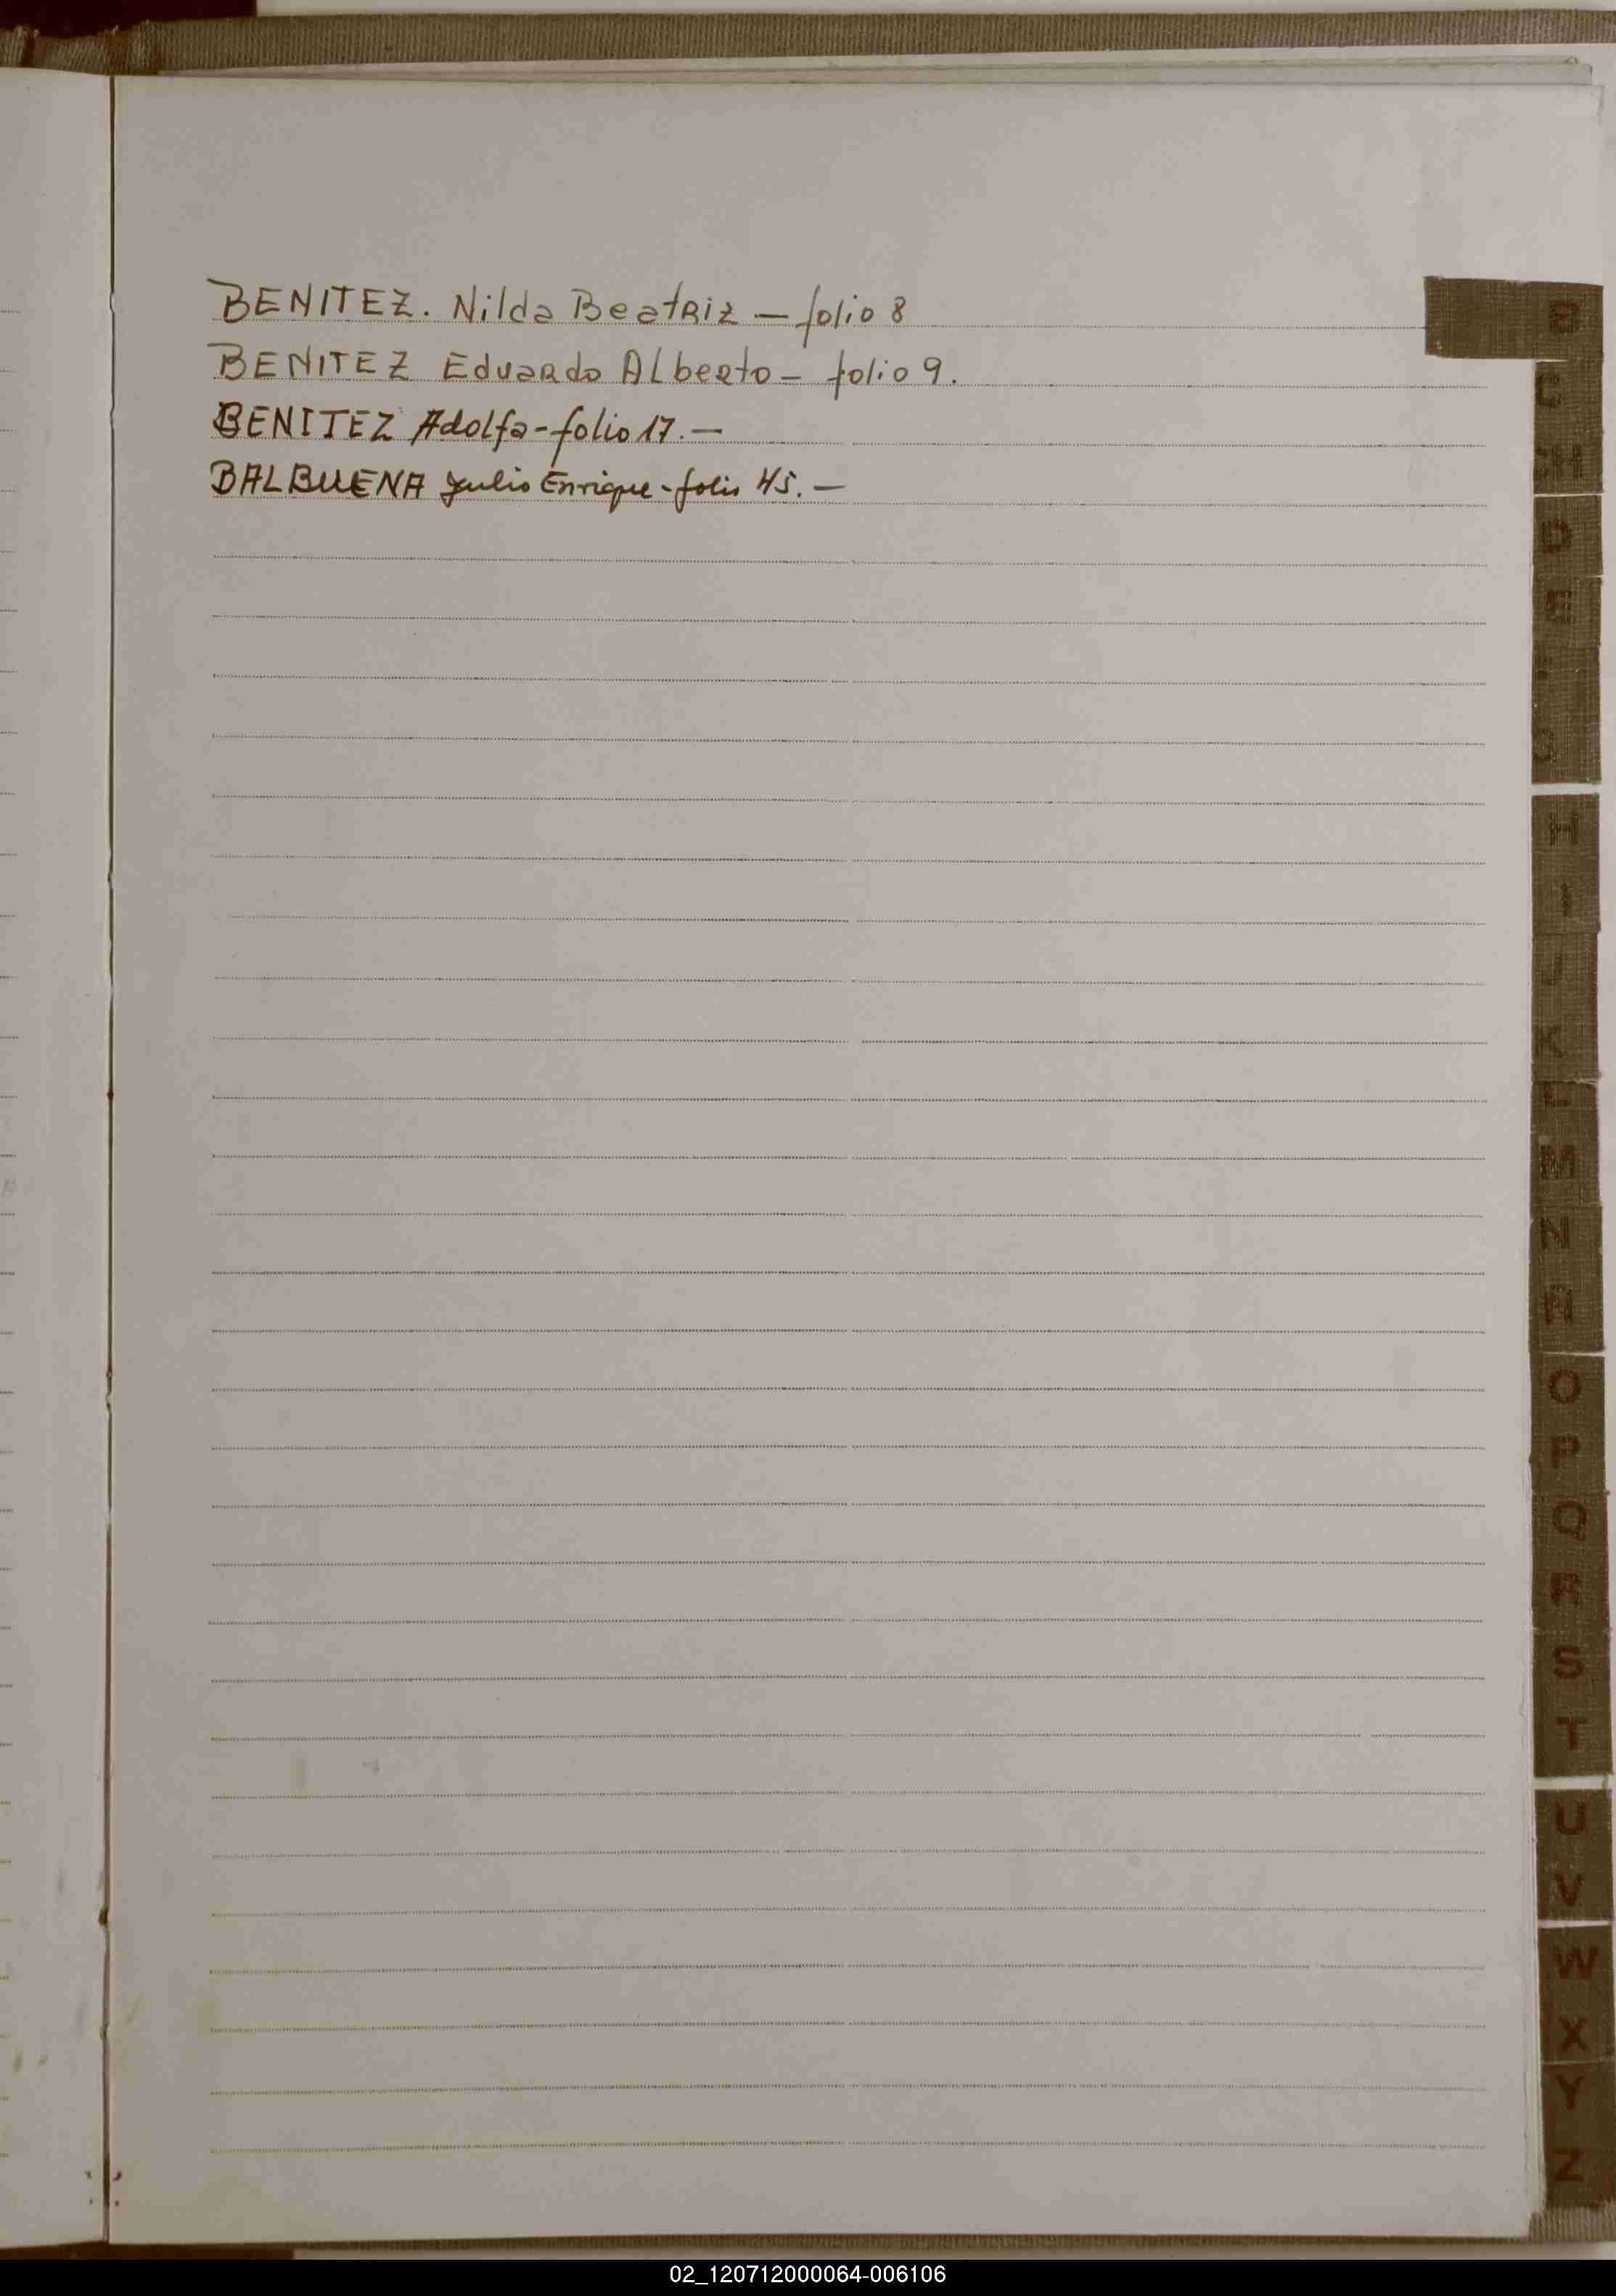 BENITEZ. Nilda Beatriz — folio 8
BENITEZ Eduardo Alberto - folio 9.
BENITEZ Adolfa - folio 17. —
BALBUENA Julio Enrique - folio 45. —
B
C
CH
D
E
F
G
H
I
J
K
L
M
N
Ñ
O
P
Q
R
S
T
U
V
W
X
Y
Z
02_120712000064-006106